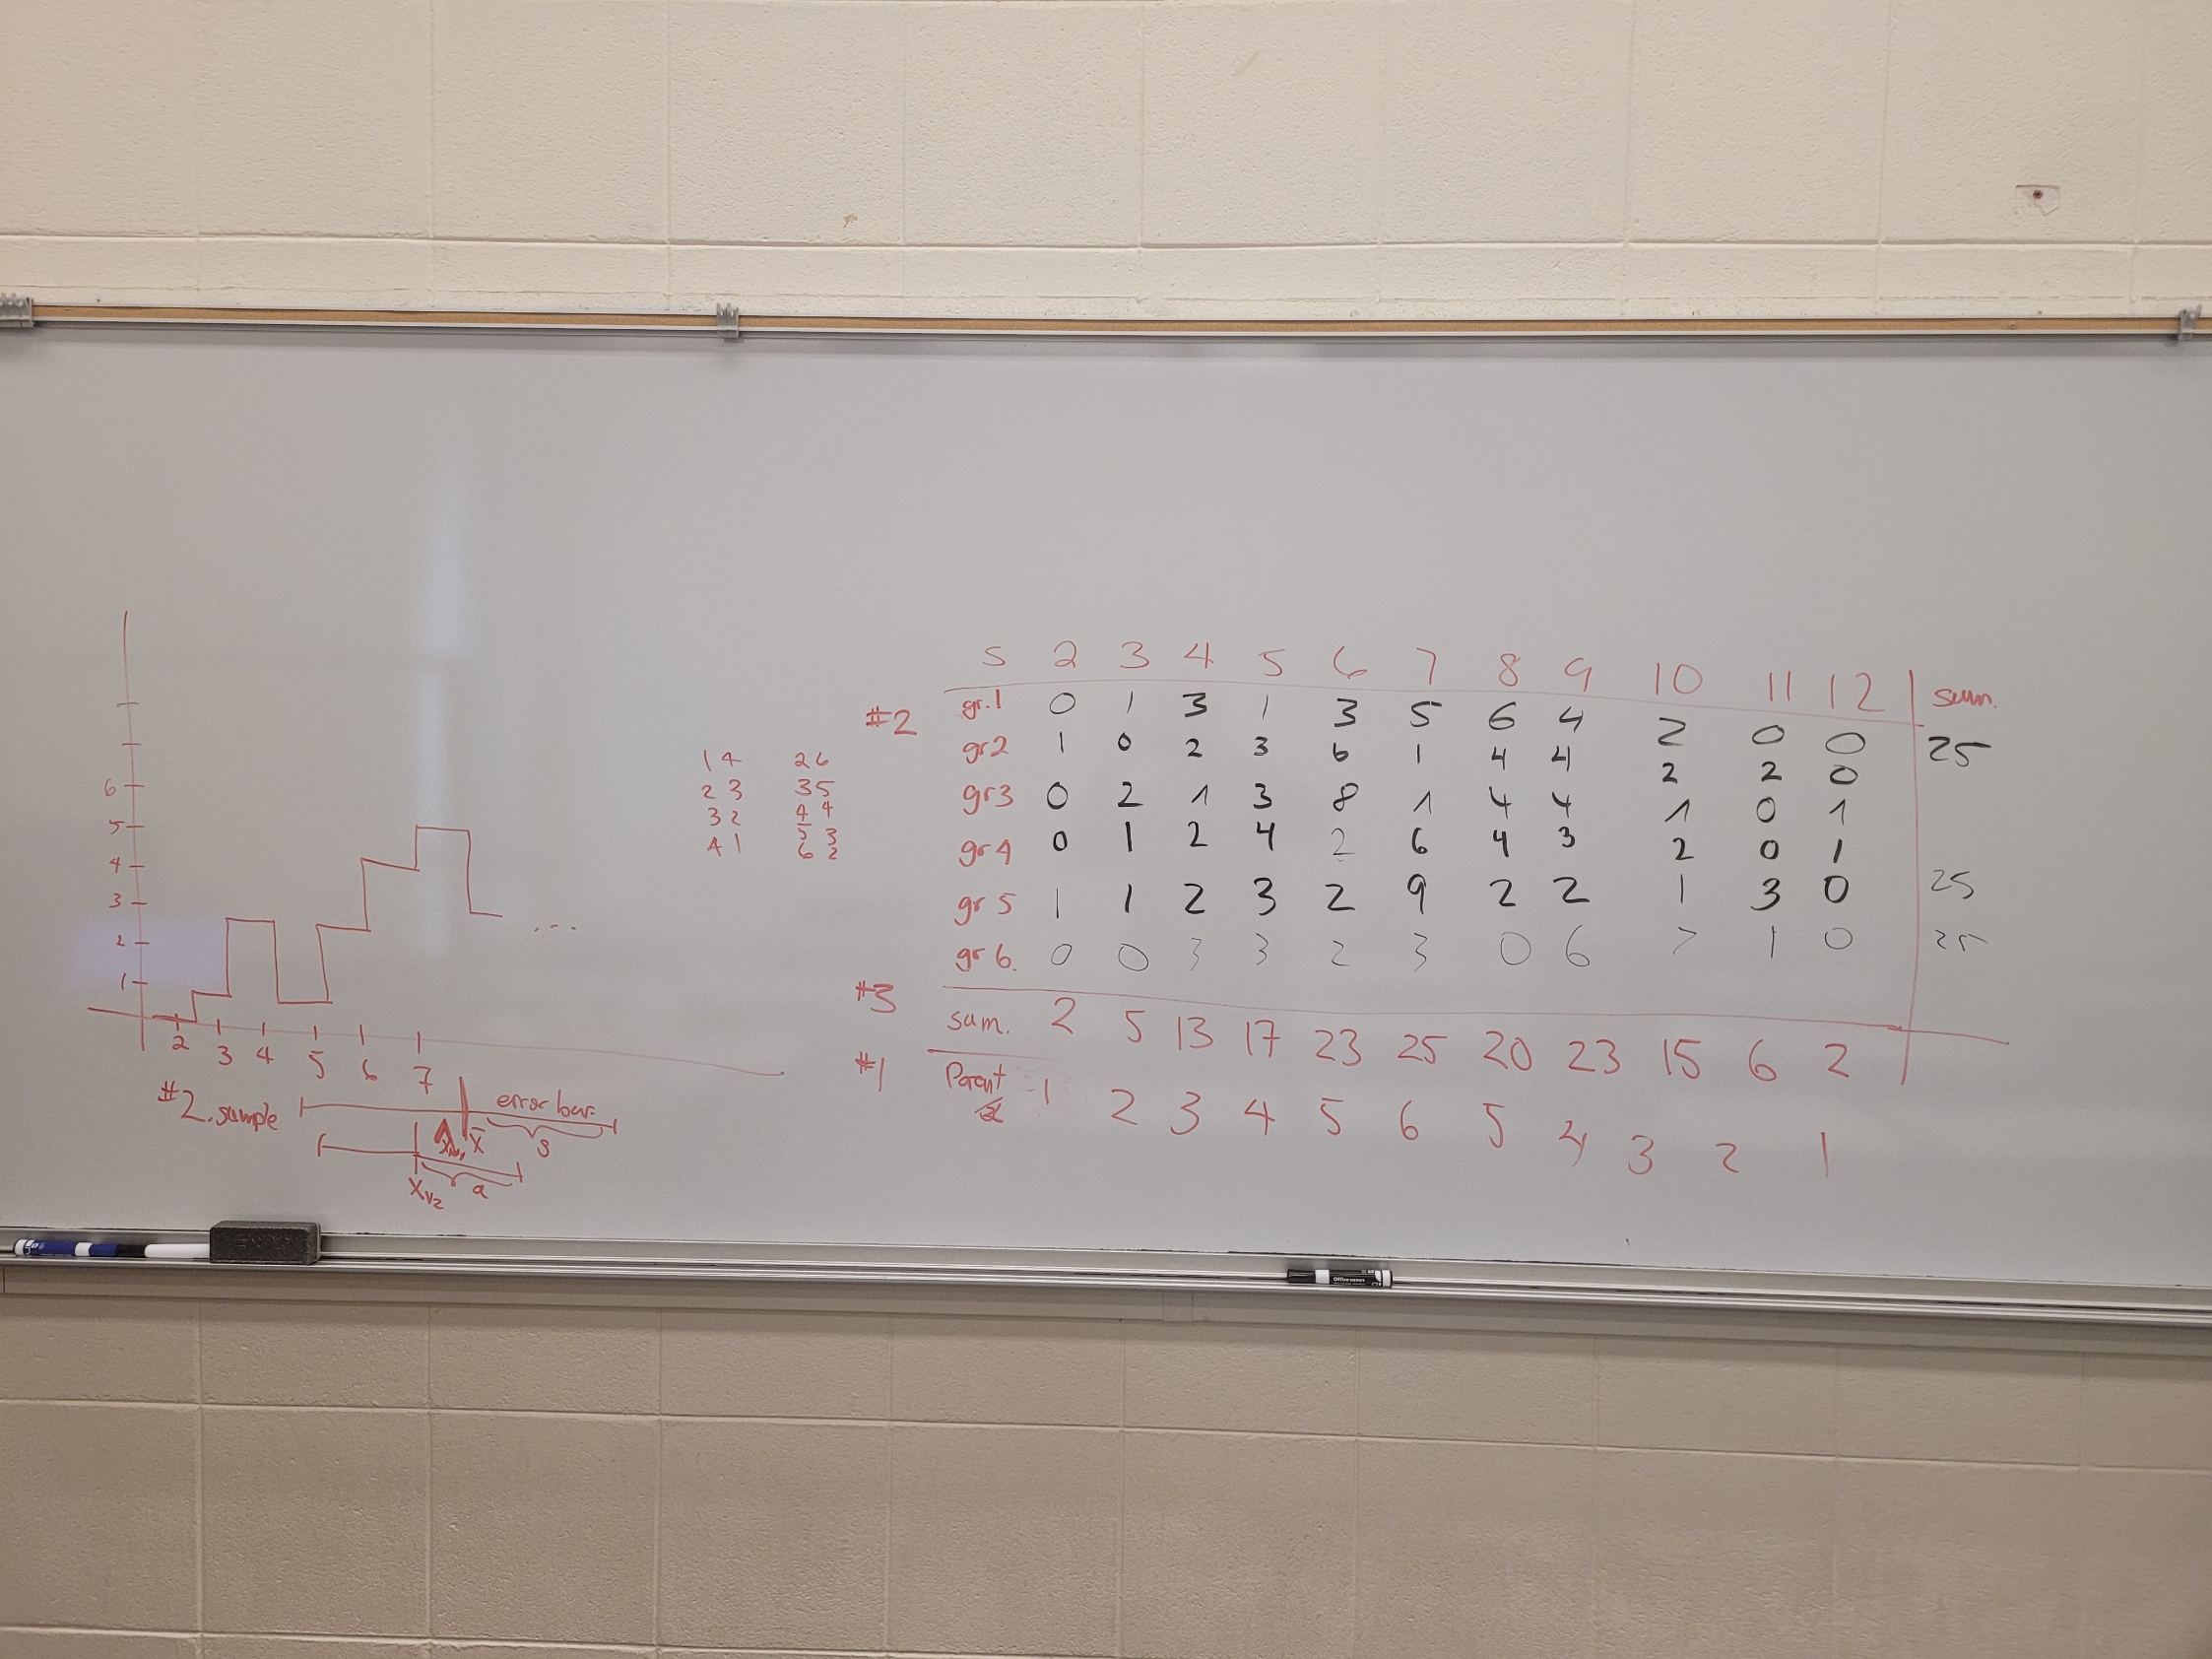 6
5
4
3
2
1
2 3 4 5 6 7
#2. sample
error bar.
x̄
s
X1/2
a
1 4 2 6
2 3 3 5
3 2 4 4
4 1 5 3
6 2
S 2 3 4 5 6 7 8 9 10 11 12 sum.
#2 gr.1 0 1 3 1 3 5 6 4 2 0 0 25
gr2 1 0 2 3 6 1 4 4 2 2 0
gr3 0 2 1 3 8 1 4 4 1 0 1
gr4 0 1 2 4 2 6 4 3 2 0 1
gr 5 1 1 2 3 2 9 2 2 1 3 0 25
gr 6. 0 0 3 3 2 3 0 6 7 1 0 25
#3 sum. 2 5 13 17 23 25 20 23 15 6 2
#1 Parent 1 2 3 4 5 6 5 4 3 2 1
EXPO
OFFICE DEPOT